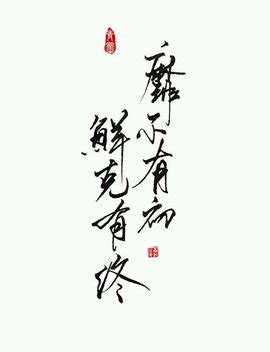 靡不有初
鮮克有终